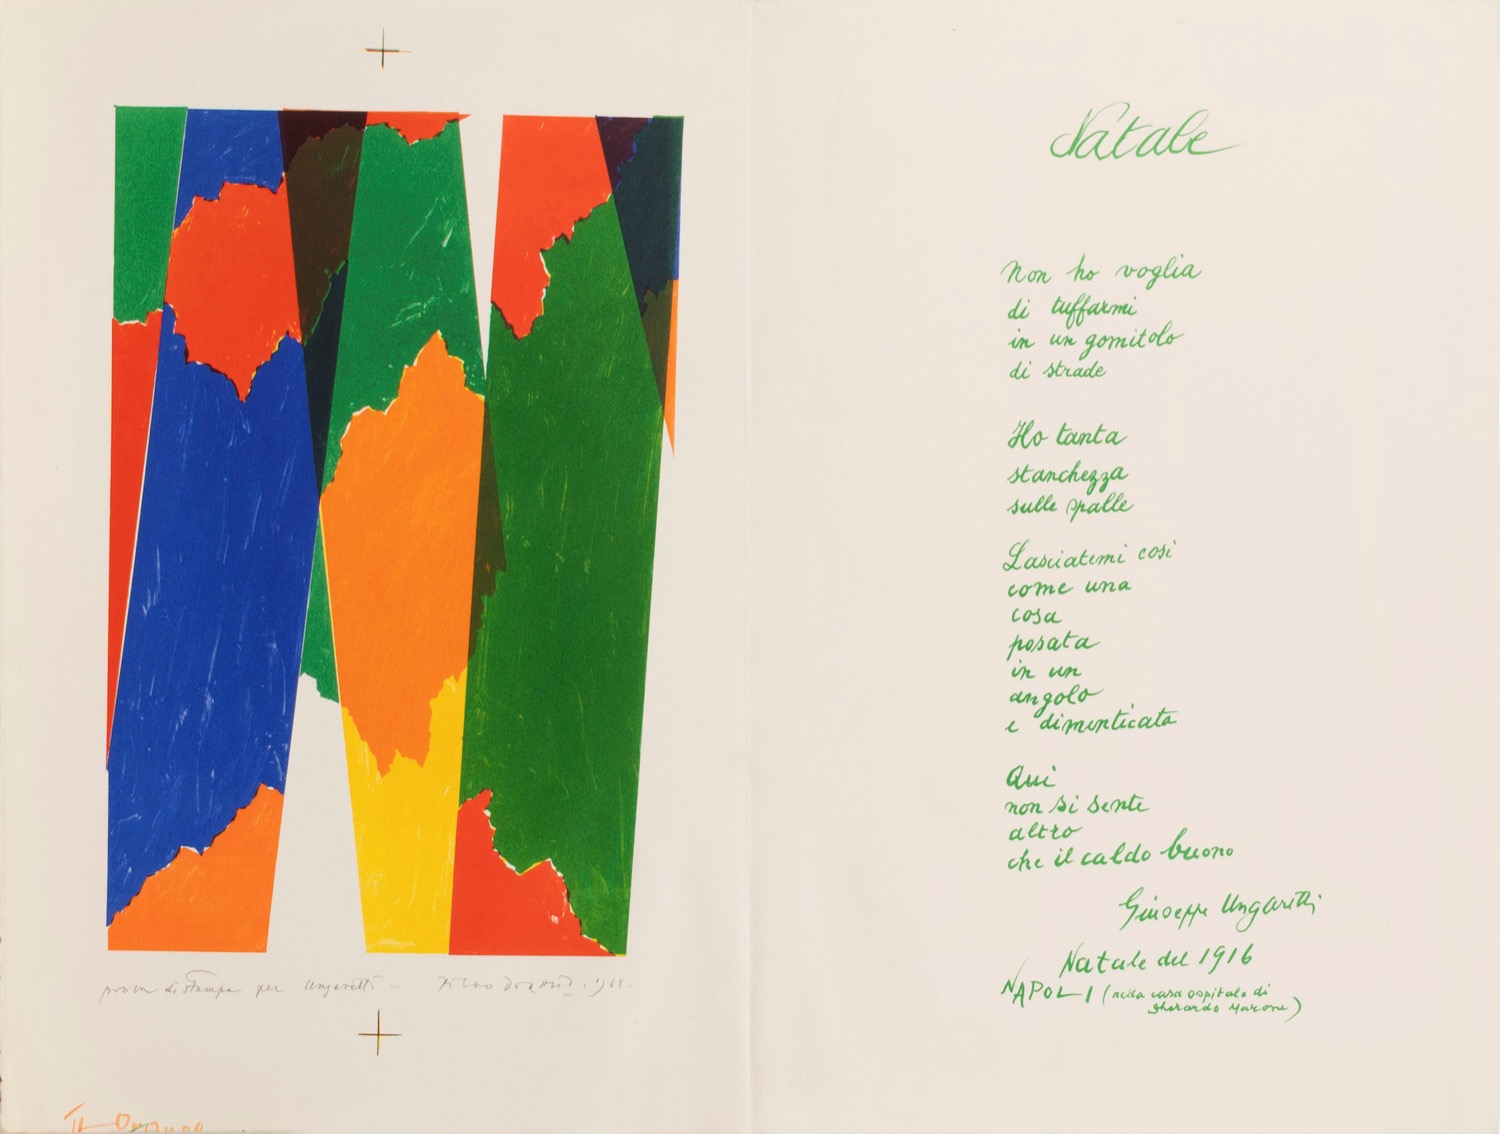 prova di stampa per Ungaretti – Piero Dorazio. 1968.
Natale
Non ho voglia
di tuffarmi
in un gomitolo
di strade
Ho tanta
stanchezza
sulle spalle
Lasciatemi così
come una
cosa
posata
in un
angolo
e dimenticata
Qui
non si sente
altro
che il caldo buono
Giuseppe Ungaretti
Natale del 1916
NAPOLI (nella casa ospitale di
Gherardo Marone)